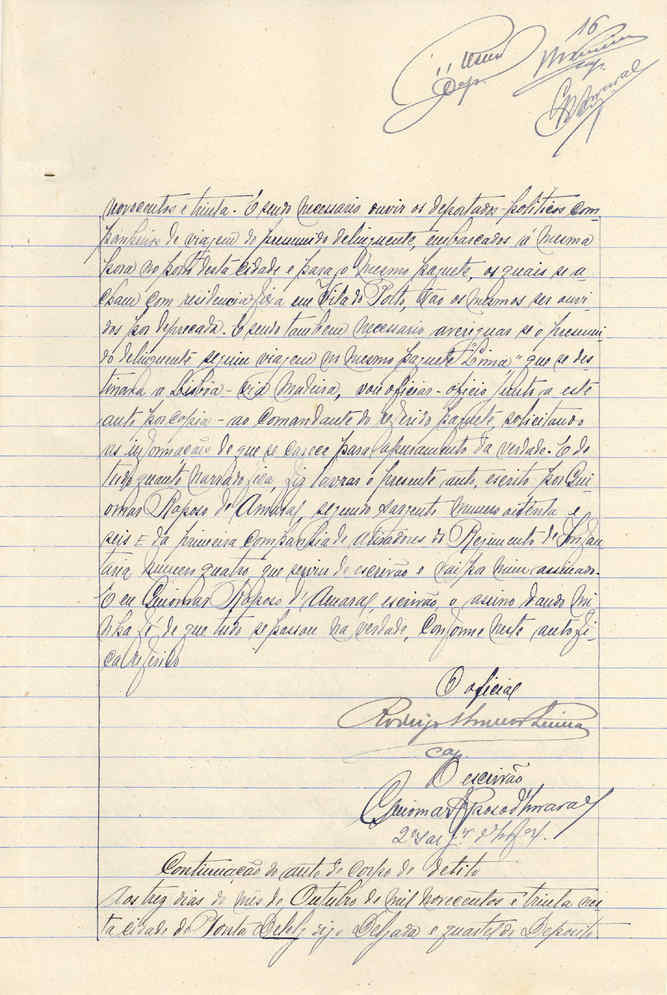 16
novecentos e trinta. E sendo necessario ouvir os deportados politicos com-
panheiros de viagem do presumido delinquente, embarcados á mesma
hora no porto desta cidade e para o mesmo paquete, os quais se a-
cham com residencia fixa em Vila do Porto, vão os mesmos ser ouvi-
dos por deprecada. E sendo tambem necessario averiguar se o presumi-
do delinquente seguiu viagem no mesmo paquete "Lima" que se des-
tinava a Lisbôa - via Madeira, vou oficiar - oficio junto a este
auto por copia - ao Comandante do referido paquete, solicitando
as informação de que se carece para apuramento da verdade. E de
tudo quanto narrado fica, fiz lavrar o presente auto, escrito por Gui-
omar Raposo d' Amaral, segundo sargento numero oitenta e
seis E da primeira companhia de atiradores do Regimento de Infan-
taria numero quatro que serviu de escrivão e vai por mim assinado.
E eu Guiomar Raposo d' Amaral, escrivão, o assino dando mi-
nha fé de que tudo se passou na verdade, conforme neste auto fi-
ca referido
O oficial
Rodrigo
cap.
O escrivão
Guiomar Raposo d'Amaral
2º sar
Continuação do auto de corpo de delito
Aos trez dias do mês de Outubro de mil novecentos e trinta nes-
ta cidade de Ponta Delelg digo Delgada e quartel do Deposito